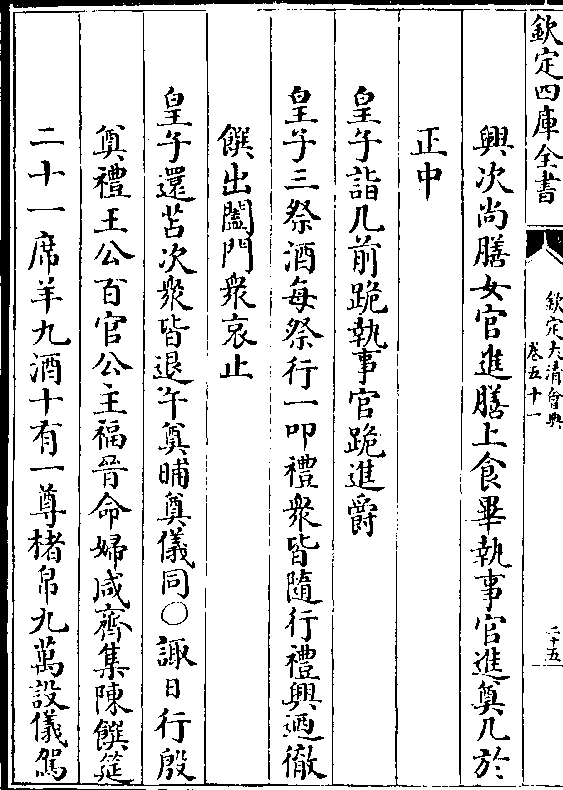 欽定四庫全書
欽定大清會典
卷五十一
二十五
興次尚膳女官進膳上食畢執事官進奠几於
正中
皇子詣几前跪執事官跪進爵
皇子三祭酒每祭行一叩禮衆皆隨行禮興迺徹
饌出闔門衆哀止
皇子還苫次衆皆退午奠晡奠儀同○諏日行殷
奠禮王公百官公主福晉命婦咸齊集陳饌筵
二十一席羊九酒十有一尊楮帛九萬設儀駕